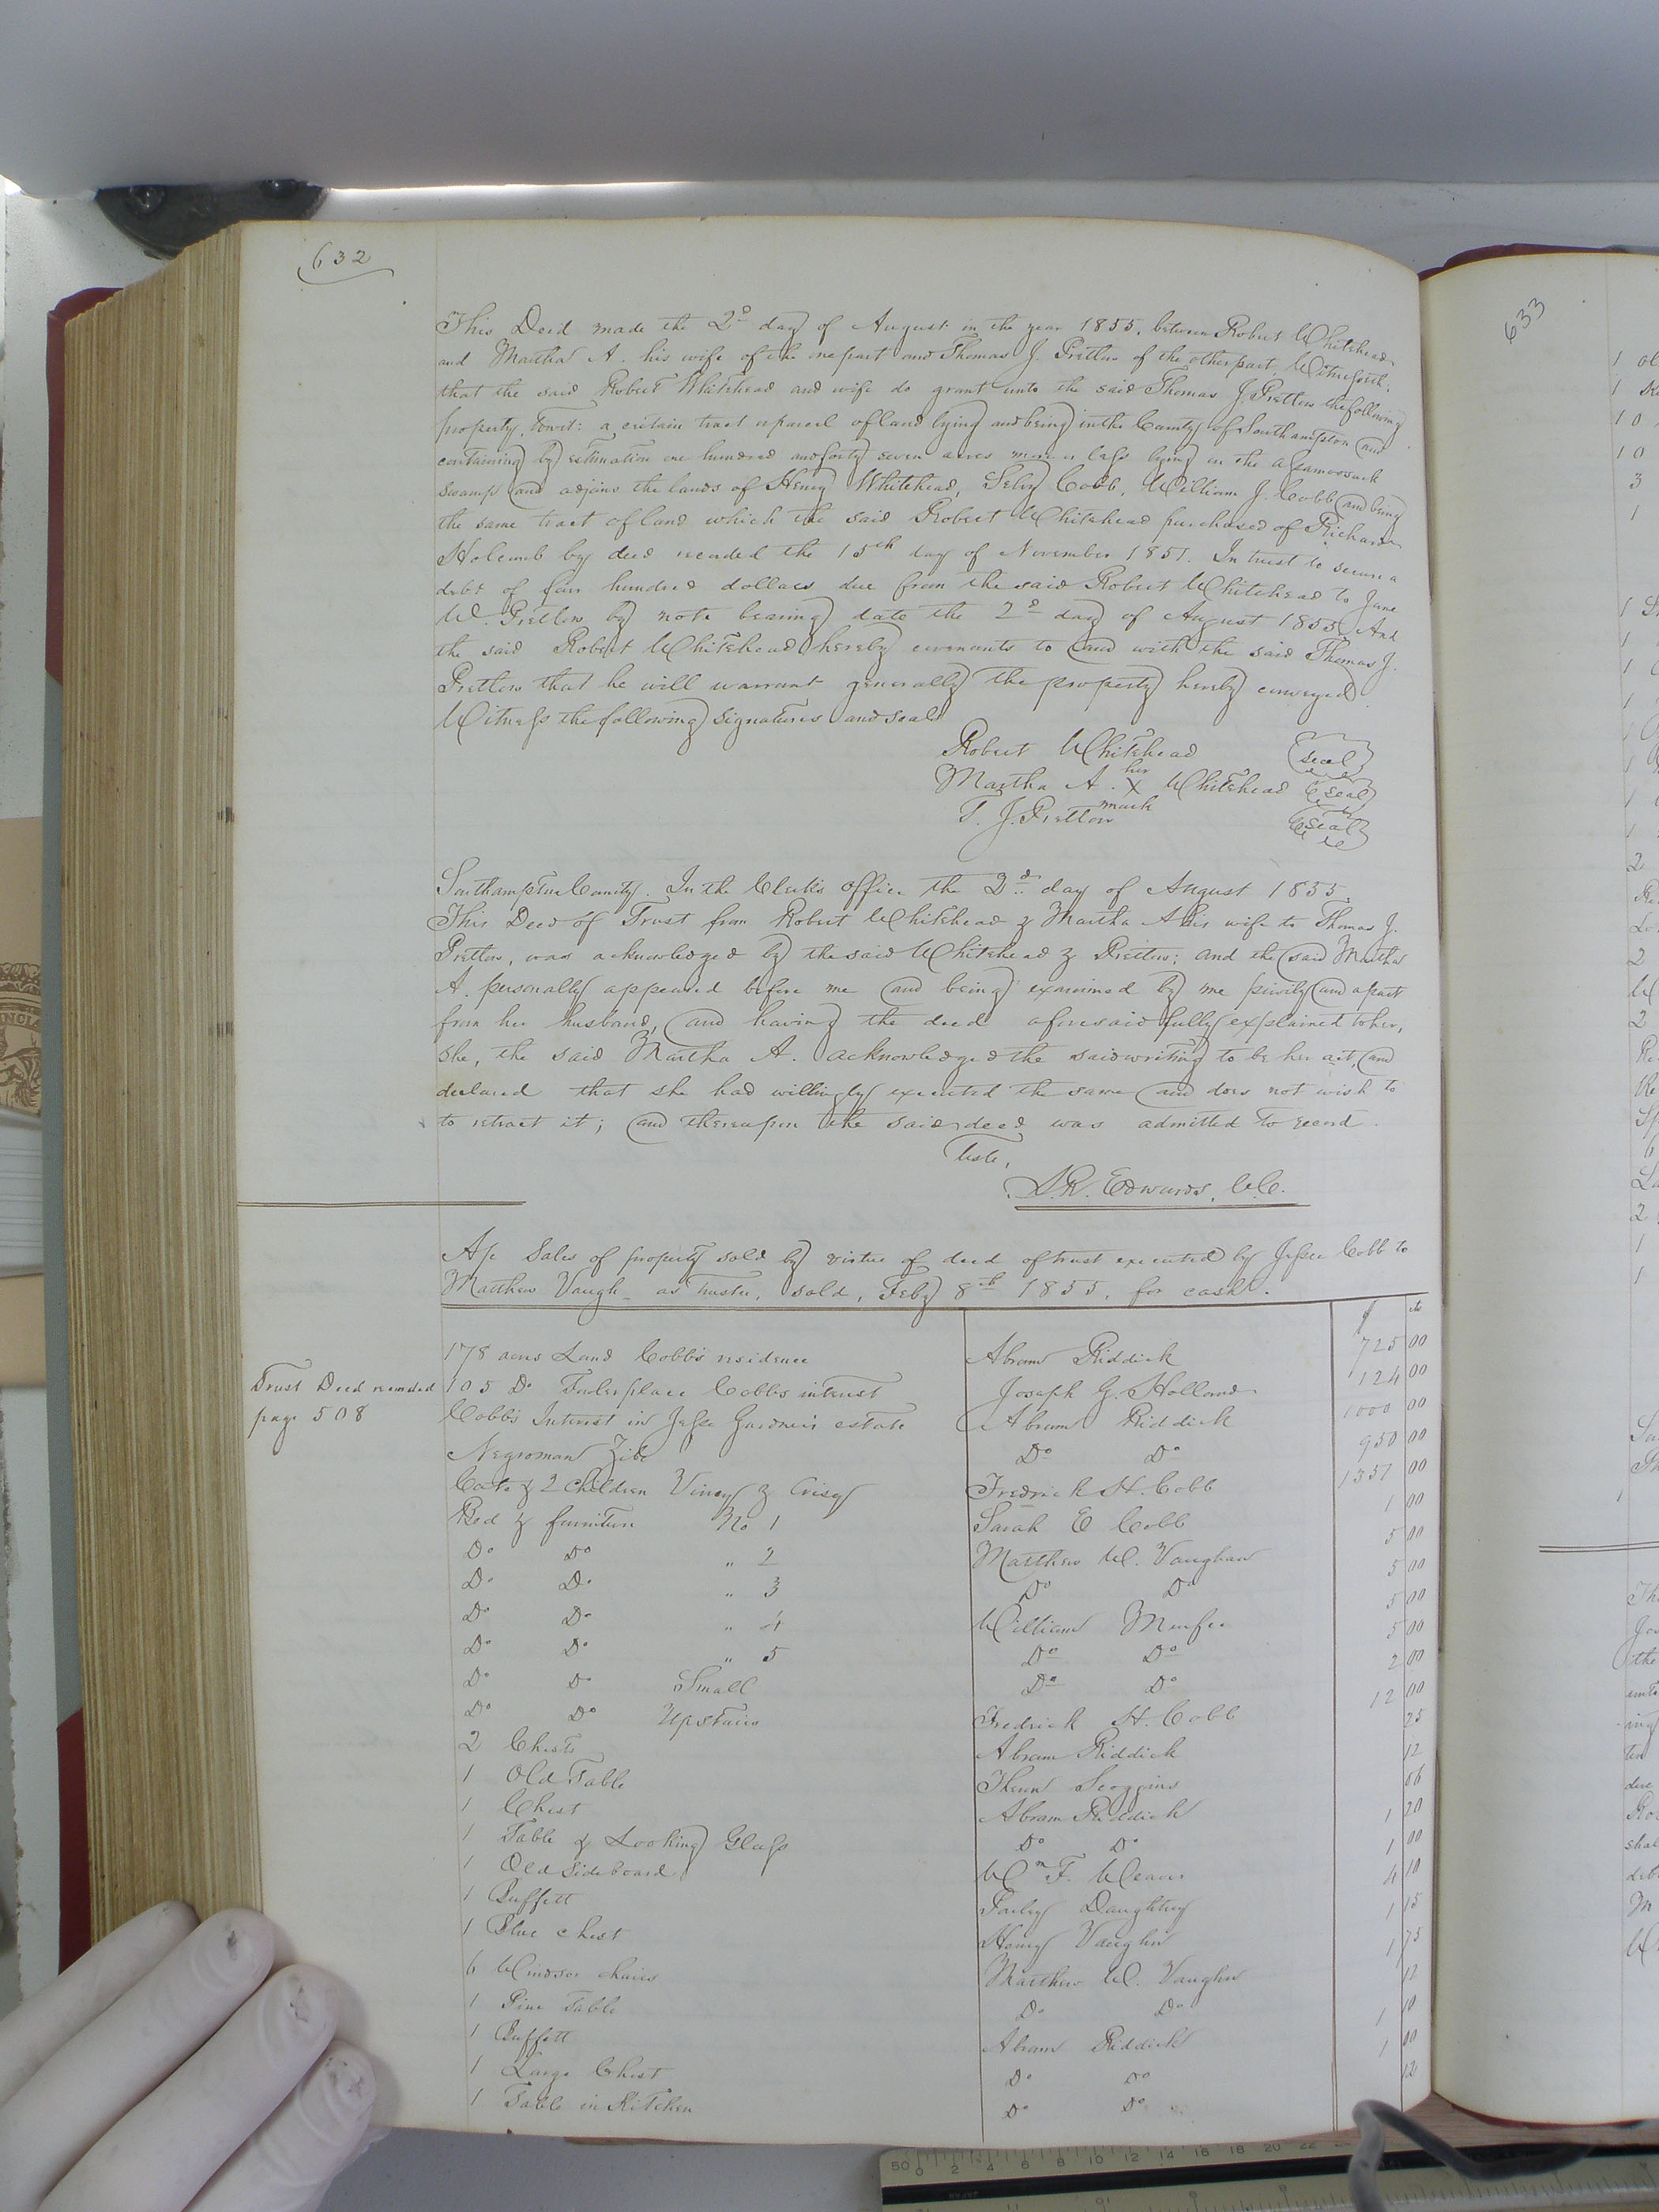 632
This Deed made the 2d day of August in the year 1855, between Robert Whitehead
and Martha A. his wife of the one part and Thomas J. Pretlow of the other part, Witnesseth:
that the said Robert Whitehead and wife do grant unto the said Thomas J. Pretlow the following
property, Towit: a certain tract or parcel of land lying and being in the County of Southampton and
containing by estimation one hundred and forty seven acres more or less lying in the Assamoosack
Swamp and adjoins the lands of Henry Whitehead, Selvy Cobb, William J. Cobb and being
the same tract of land which the said Robert Whitehead purchased of Richard
Holcomb by deed recorded the 15th day of November 1851. In trust to secure a
debt of four hundred dollars due from the said Robert Whitehead to Jane
W. Pretlow by note bearing date the 2d day of August 1855 And
the said Robert Whitehead hereby covenants to and with the said Thomas J.
Pretlow that he will warrant generally the property hereby conveyed
Witness the following signatures and seals
Robert Whitehead seal
Martha A. her X mark Whitehead seal
T. J. Pretlow seal
Southampton County. In the Clerk's office the 2d day of August 1855.
This Deed of Trust from Robert Whitehead & Martha A his wife to Thomas J.
Pretlow, was acknowledged by the said Whitehead & Pretlow; and the said Martha
A. personally appeared before me and being examined by me privily and apart
from her husband, and having the deed aforesaid fully explained to her,
she, the said Martha A. acknowledged the said writing to be her act, and
declared that she had willingly executed the same and does not wish to
to retract it; and thereupon the said deed was admitted to record.
Teste,
L. R. Edwards, C.C.
A/c Sales of property sold by virtue of deed of trust executed by Jesse Cobb to
Matthew Vaugh as trustee, sold, Feby 8th 1855, for cash.
$ cts
178 acres Land Cobb's residence Abram Riddick 725 00
Trust Deed recorded
page 508
105 Do place Cobb's interest Joseph G. Holland 124 00
Cobb's Interest in Jesse Gardner's estate Abram Riddick 1000 00
Negroman Zibe Do Do 950 00
Cate & 2 Children Viney & Crisey Fredrick H. Cobb 1357 00
Bed & furniture No 1 Sarah E Cobb 1 00
Do Do " 2 Matthew W. Vaughan 5 00
Do Do " 3 Do Do 5 00
Do Do " 4 William Murfee 5 00
Do Do " 5 Do Do 5 00
Do Do Small Do Do 2 00
Do Do Upstairs Fredrick H. Cobb 12 00
2 Chests Abram Riddick 25
1 Old Table Scoggins 12
1 Chest Abram Riddick 06
1 Table & Looking Glass Do Do 1 20
1 Old Sideboard Wm F. Weaver 1 00
1 Buffett Daughtrey 4 10
1 Blue chest Henry Vaughn 1 15
6 Windsor chairs Matthew W. Vaughn 1 75
1 Pine Table Do Do 12
1 Buffett Abram Riddick 1 10
1 Large Chest Do Do 1 00
1 Table in Kitchen Do Do 12
633